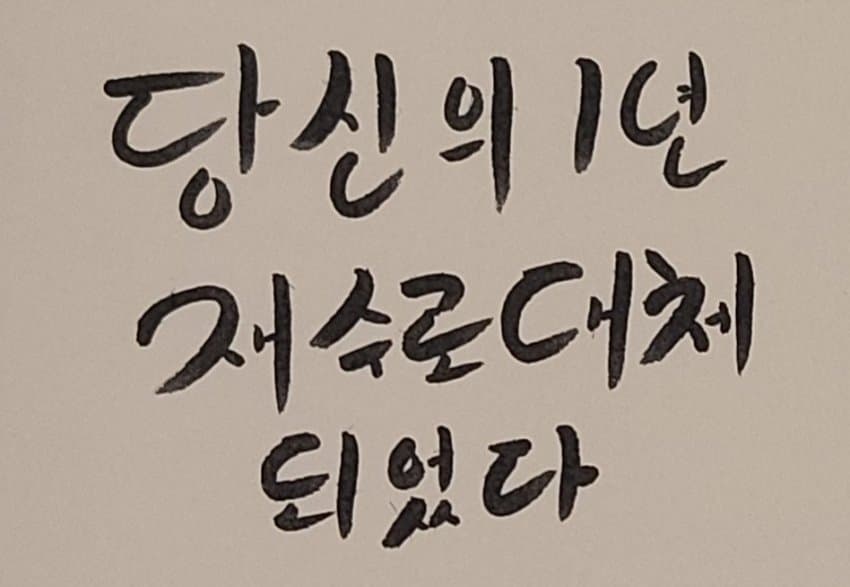 당신의 1년
재수로 대체
되었다